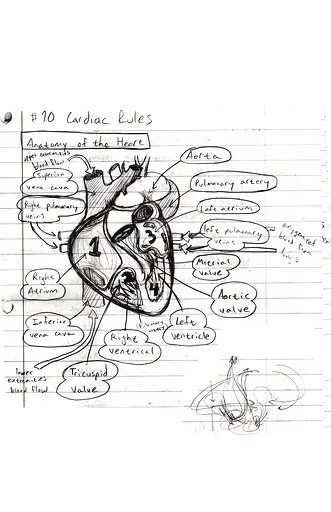 #10 Cardiac Rules
Anatomy of the Heart
upper extremeties
blood flow
Superior
vena cava
Right pulmonary
veins
Right
Atrium
Inferior
vena cava
lower
extremeties
blood flow
Tricuspid
valve
Right
ventrical
Pulmonary
Left
ventricle
Aorta
Pulmonary artery
Left atrium
left pulmonary
veins
oxygenated
blood from
lungs
Mitrial
valve
Aortic
valve
1
2
3
4